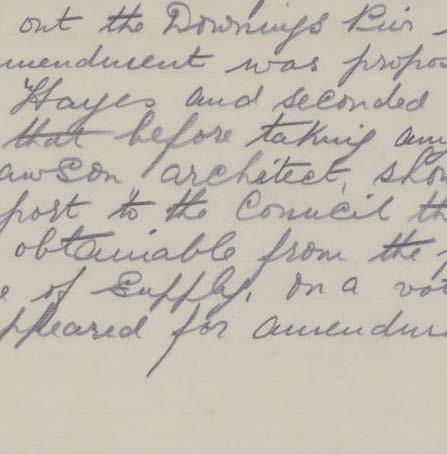 out the Downings Pier
mendment was propos
Hayes and seconded
that before taking any
awson architect, sho
port to the Council th
obtainable from the
e of supply. On a vot
ppeared for amendm